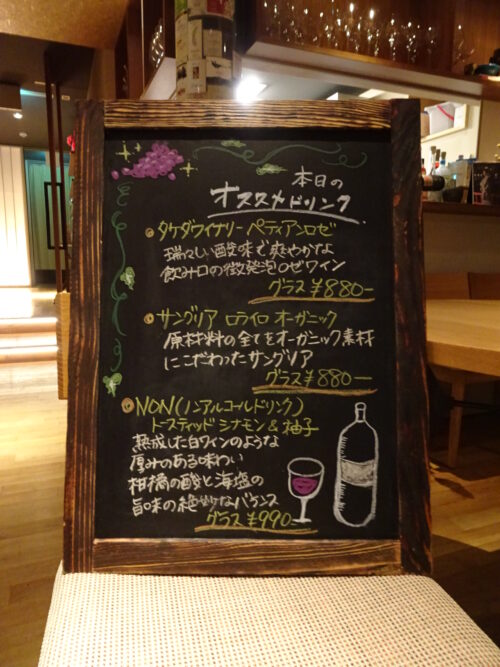 本日の
オススメドリンク
タケダワイナリー ペティアンロゼ
瑞々しい酸味で爽やかな
飲み口の微発泡ロゼワイン
グラス ¥880-
サングリア ロライロ オーガニック
原材料の全てをオーガニック素材
にこだわったサングリア
グラス ¥880-
NON(ノンアルコールドリンク)
トースティッド シナモン&柚子
熟成した白ワインのような
厚みのある味わい
柑橘の酸と海塩の
旨味の絶妙なバランス
グラス ¥990-